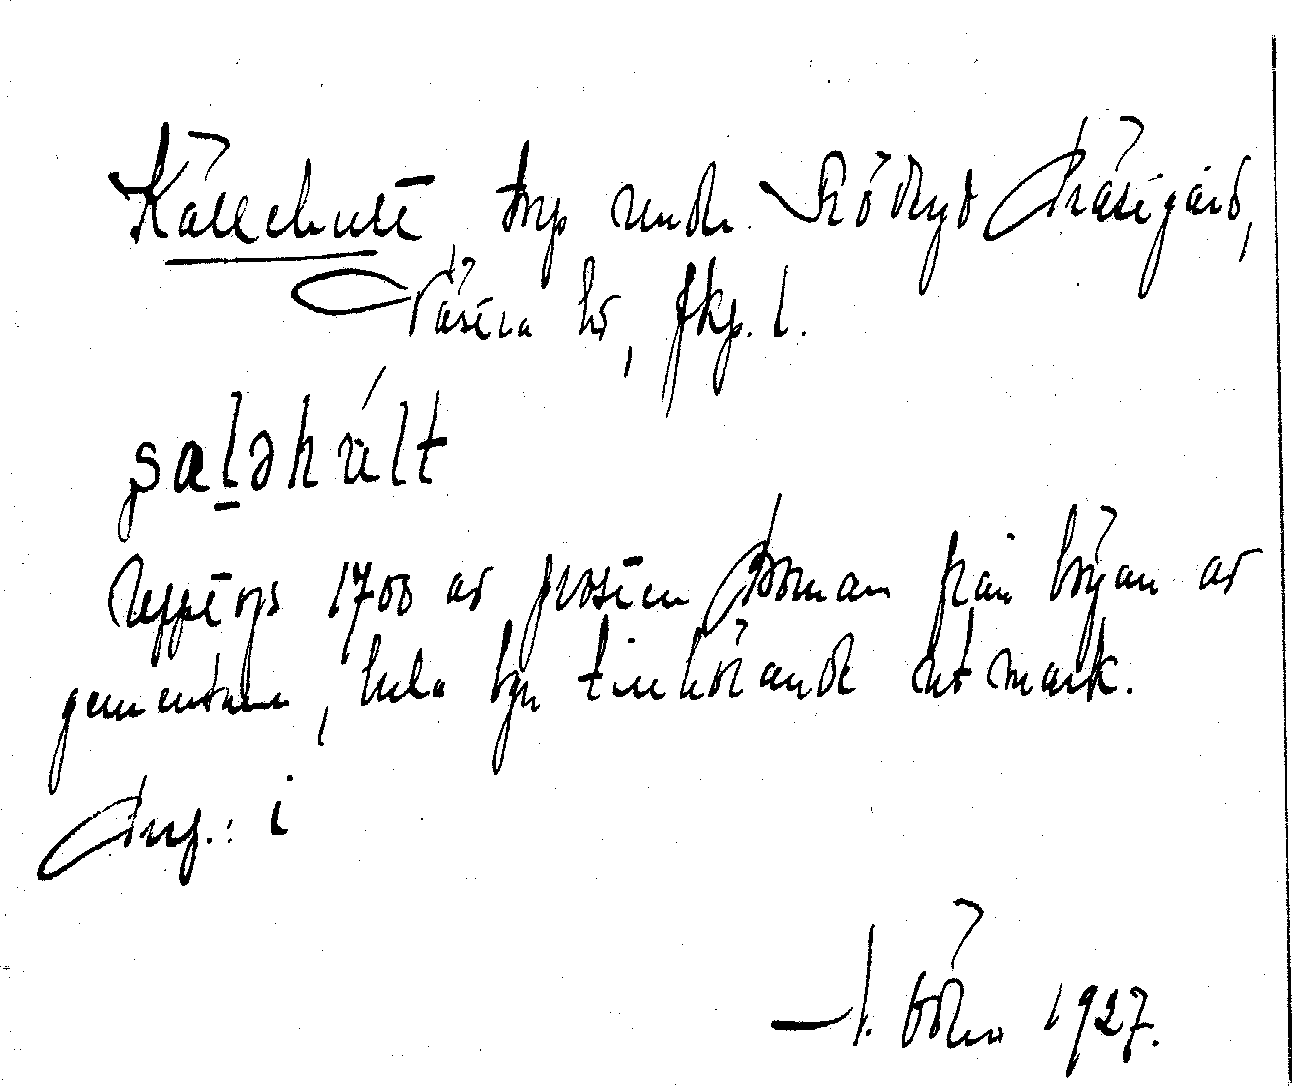 Källehult, torp under Rödkyd Prästgård,
Västra hd, Jkp. l.
sal̠əhúlt
Upptogs 1700 av prosten Doman från början av
gemensam, hela byn tillhörande utmark.
Ang.: i
1927.